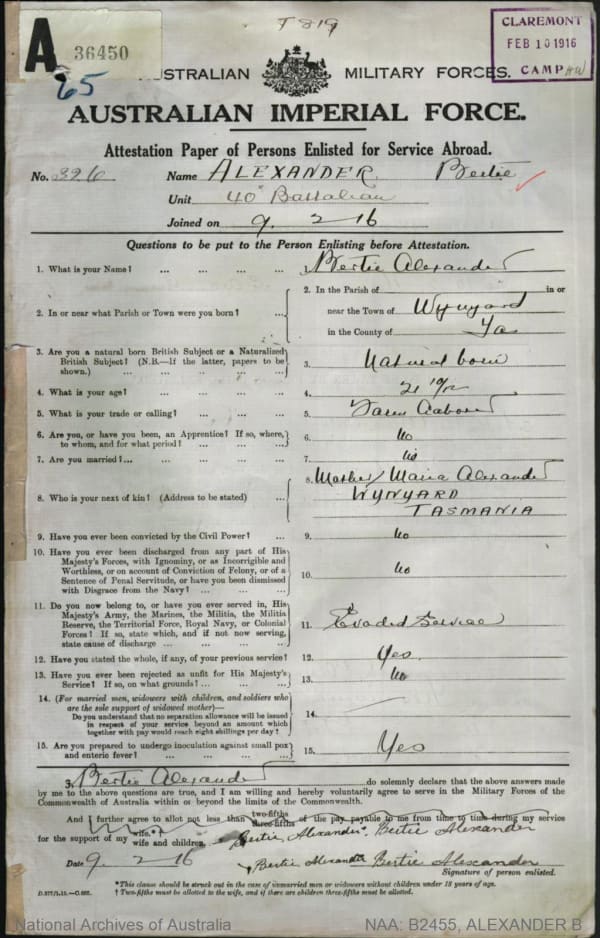 T 819
A 36450
65
CLAREMONT
FEB 10 1916
CAMP
AUSTRALIAN MILITARY FORCES.
AUSTRALIAN IMPERIAL FORCE.
Attestation Paper of Persons Enlisted for Service Abroad.
No. 326 Name ALEXANDER Bertie
Unit 40th Battalion
Joined on 9. 2 16
Questions to be put to the Person Enlisting before Attestation.
1. What is your Name? ... ... ... ... 1. Bertie Alexander
2. In or near what Parish or Town were you born? ... 2. In the Parish of in or
near the Town of Wynyard
in the County of Tas
3. Are you a natural born British Subject or a Naturalized
British Subject? (N.B.—If the latter, papers to be
shown.) ... ... ... ... 3. Natural born
4. What is your age? ... ... ... ... 4. 21 10/12
5. What is your trade or calling? ... ... ... 5. Farm Labourer
6. Are you, or have you been, an Apprentice? If so, where,
to whom, and for what period? ... ... ... 6. No
7. Are you married?... ... ... ... ... 7. No
8. Who is your next of kin? (Address to be stated) ... 8. Mother Maria Alexander
WYNYARD
TASMANIA
9. Have you ever been convicted by the Civil Power? ... 9. No
10. Have you ever been discharged from any part of His
Majesty's Forces, with Ignominy, or as Incorrigible and
Worthless, or on account of Conviction of Felony, or of a
Sentence of Penal Servitude, or have you been dismissed
with Disgrace from the Navy? ... ... ... 10. No
11. Do you now belong to, or have you ever served in, His
Majesty's Army, the Marines, the Militia, the Militia
Reserve, the Territorial Force, Royal Navy, or Colonial
Forces? If so, state which, and if not now serving,
state cause of discharge ... ... ... ... 11. Evaded Service
12. Have you stated the whole, if any, of your previous service? 12. Yes
13. Have you ever been rejected as unfit for His Majesty's
Service? If so, on what grounds? ... ... ... 13. No
14. (For married men, widowers with children, and soldiers who
are the sole support of widowed mother)—
Do you understand that no separation allowance will be issued
in respect of your service beyond an amount which
together with pay would reach eight shillings per day? 14. —
15. Are you prepared to undergo inoculation against small pox
and enteric fever? ... ... ... ... 15. Yes
I, Bertie Alexander do solemnly declare that the above answers made
by me to the above questions are true, and I am willing and hereby voluntarily agree to serve in the Military Forces of the
Commonwealth of Australia within or beyond the limits of the Commonwealth.
And I further agree to allot not less than two-fifths three-fifths of the pay payable to me from time to time during my service
for the support of my wife.*† wife and children. Bertie, Alexander. Bertie Alexander
Date 9. 2 16 Bertie Alexander Bertie Alexander
Signature of person enlisted.
*This clause should be struck out in the case of unmarried men or widowers without children under 18 years of age.
† Two-fifths must be allotted to the wife, and if there are children three-fifths must be allotted.
National Archives of Australia NAA: B2455, ALEXANDER B